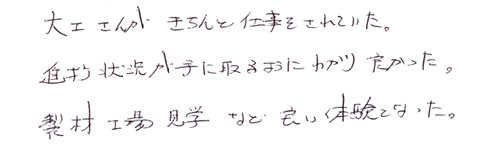 大工さんがきちんと仕事をされていた。
進捗状況が手に取るようにわかり良かった。
製材工場見学など良い体験となった。